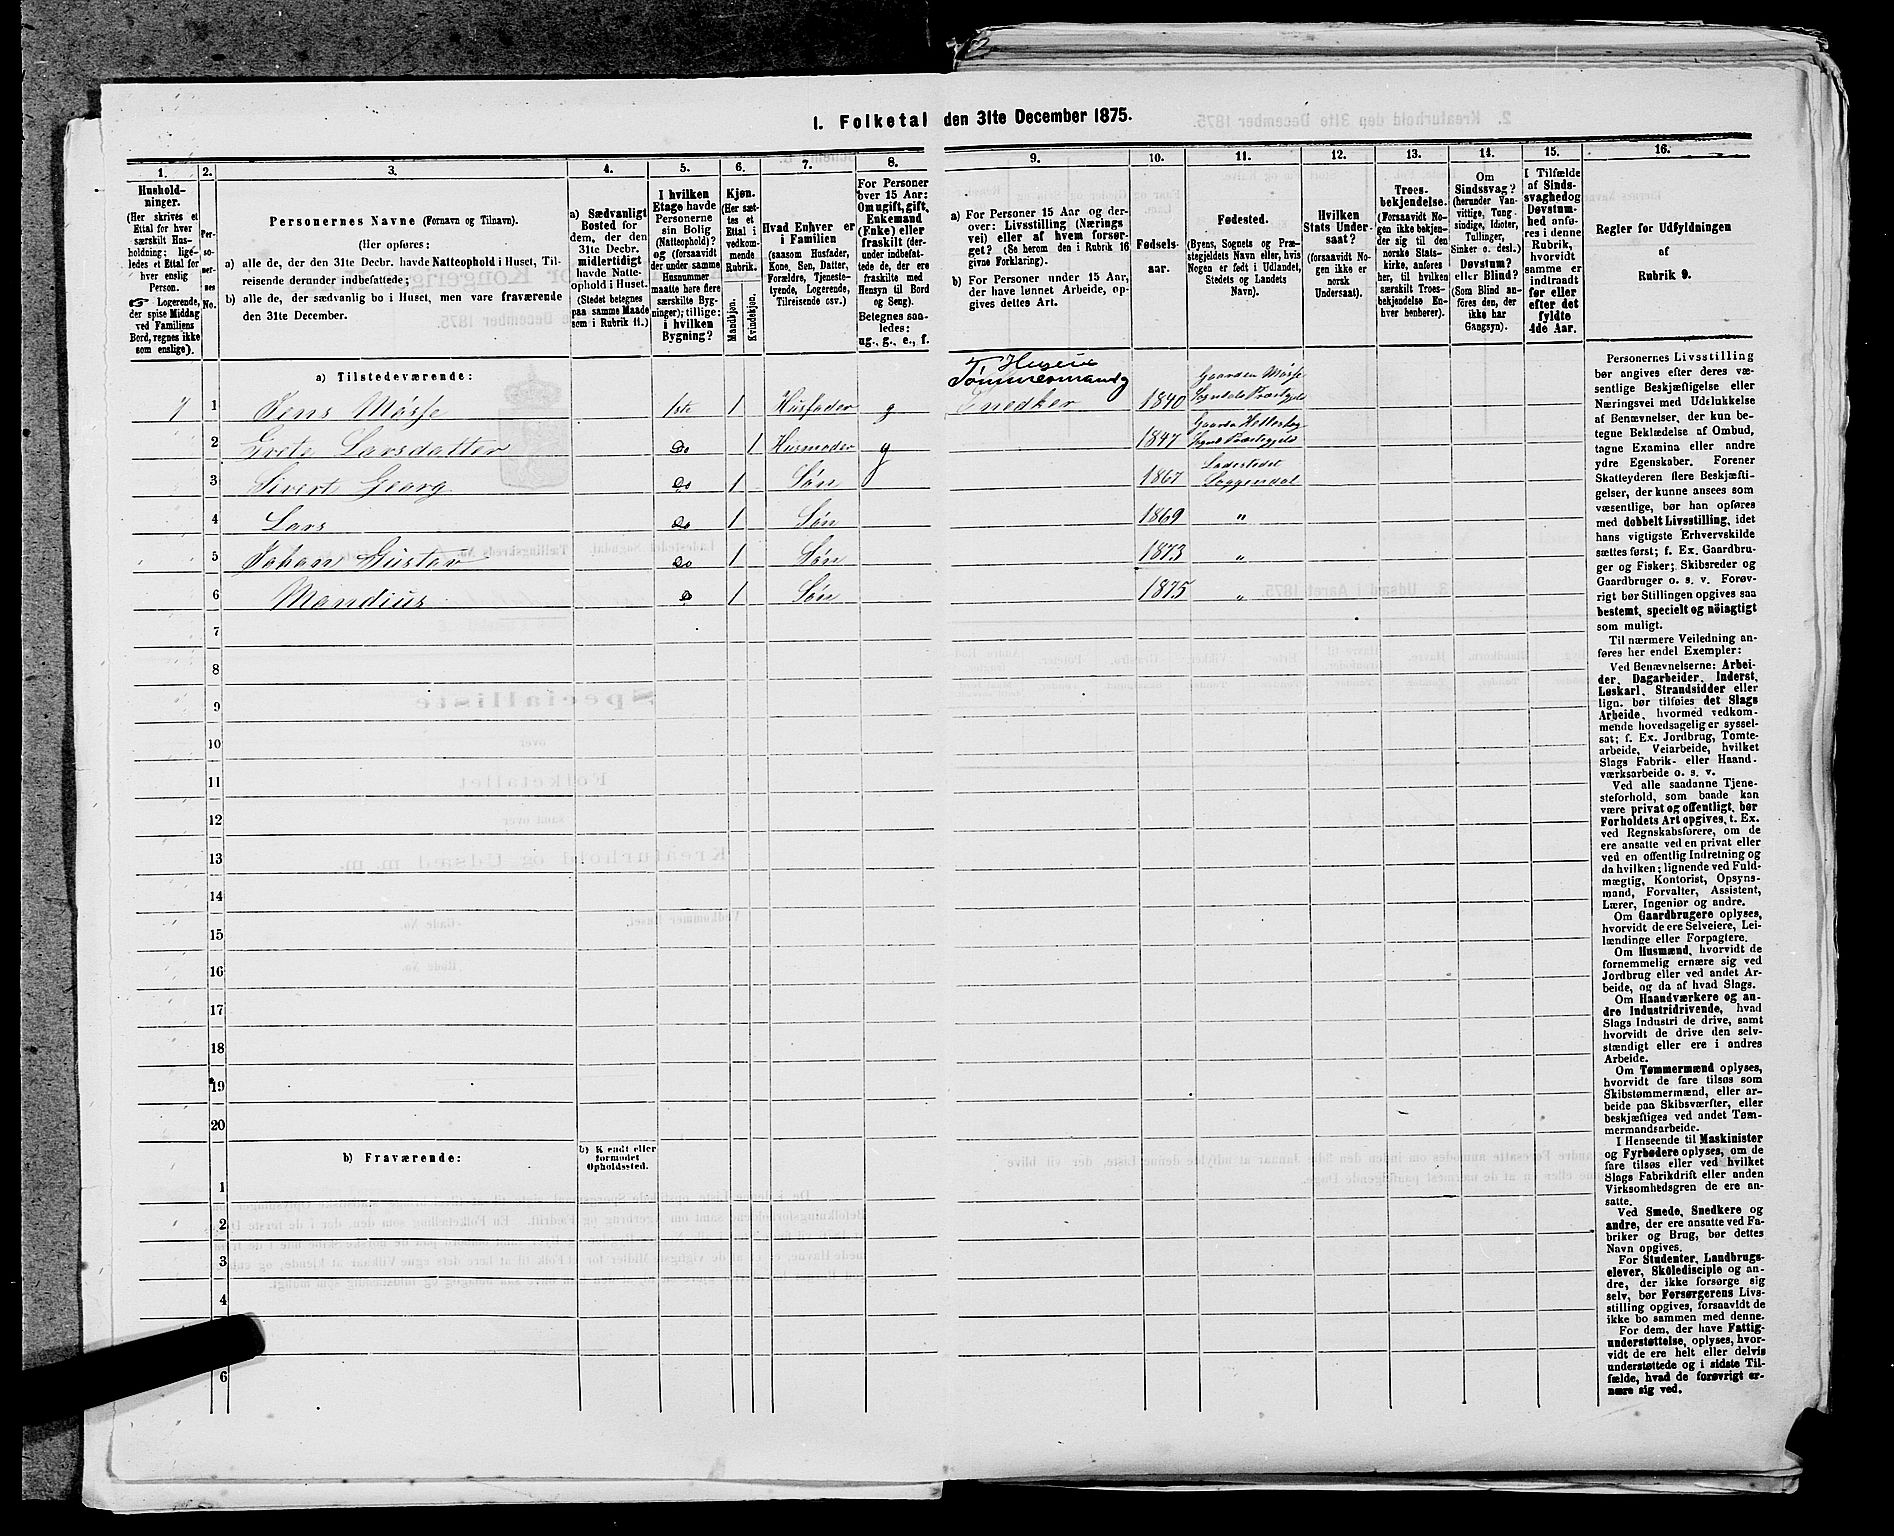 I. Folketal den 31te December 1875.
1.
Hushold-
ninger.
(Her skrives et
Ettal for hver
særskilt Hus-
holdning; lige-
ledes et Ettal for
hver enslig
Person.
Logerende,
der spise Middag
ved Familiens
Bord, regnes ikke
som enslige).
2.
Per-
so-
ner-
nes
No.
3.
Personernes Navne (Fornavn og Tilnavn).
(Her opføres:
a) alle de, der den 31te Decbr. havde Natteophold i Huset, Til-
reisende derunder indbefattede;
b) alle de, der sædvanlig bo i Huset, men vare fraværende
den 31te December.
4.
a) Sædvanligt
Bosted for
dem, der den
31te Decbr.
midlertidigt
havde Natte-
ophold i Huset.
(Stedet betegnes
paa samme Maade
som i Rubrik 11.)
5.
I hvilken
Etage havde
Personerne
sin Bolig
(Natteophold)?
og (forsaavidt
der under samme
Husnummer
maatte høre flere
særskilte Byg-
ninger); tillige:
i hvilken
Bygning?
6.
Kjøn.
(Her sæt-
tes et
Ettal i
vedkom-
mende
Rubrik.
Mandkjøn.
Kvindekjøn.
7.
Hvad Enhver er
i Familien
(saasom Husfader,
Kone, Søn, Datter,
Forældre, Tjeneste-
tyende, Logerende,
Tilreisende osv.)
8.
For Personer
over 15 Aar:
Om ugift, gift,
Enkemand
(Enke) eller
fraskilt (der-
under indbefat-
tede de, der ere
fraskilte med
Hensyn til Bord
og Seng).
Betegnes saa-
ledes:
ug., g., e., f.
9.
a) For Personer 15 Aar og der-
over: Livsstilling (Nærings-
vei) eller af hvem forsør-
get? (Se herom den i Rubrik 16
givne Forklaring).
b) For Personer under 15 Aar,
der have lønnet Arbeide, op-
gives dettes Art.
10.
Fødsels-
aar.
11.
Fødested.
(Byens, Sognets og Præ-
stegjeldets Navn eller, hvis
Nogen er født i Udlandet,
Stedets og Landets
Navn).
12.
Hvilken
Stats Under-
saat?
(forsaavidt No-
gen ikke er
norsk
Undersaat).
13.
Troes-
bekjendelse.
(Forsaavidt No-
gen ikke bekjen-
der sig til den
norske Stats-
kirke, anføres
her, til hvilken
særskilt Troes-
bekjendelse En-
hver henhører).
14.
Om
Sindssvag?
(herunder Van-
vittige, Tung-
sindige, Idioter,
Tullinger,
Sinker o. desl.)
Døvstum?
eller Blind?
(Som Blind an-
føres den, der
ikke har
Gangsyn).
15.
I Tilfælde
af Sinds-
svaghed og
Døvstum-
hed anfø-
res i denne
Rubrik,
hvorvidt
samme er
indtraadt
før eller
efter det
fyldte
4de Aar.
16.
Regler for Udfyldningen
af
Rubrik 9.
a) Tilstedeværende:
1 Jens Mósse 1ste 1 Husfader g Huseier Tömmermand og Snedker 1840 Gaarden Mósse Sogndals Præstegjeld
2 Grete Larsdatter Do 1 Husmoder g 1847 Gaarden
3 Sivert Georg Do 1 Søn 1867 Ladestedet Soggendal
4 Lars Do 1 Søn 1869 "
5 Johan Gustav Do 1 Søn 1873 "
6 Mandius Do 1 Søn 1875 "
7
8
9
10
11
12
13
14
15
16
17
18
19
20
b) Fraværende:
b) Kjendt eller
formodet
Opholdssted.
1
2
3
4
6
Personernes Livsstilling
bør angives efter deres væ-
sentlige Beskjæftigelse eller
Næringsvei med Udelukkelse
af Benævnelser, der kun be-
tegne Beklædelse af Ombud,
tagne Examina eller andre
ydre Egenskaber. Forener
Skatteyderen flere Beskjæfti-
gelser, der kunne ansees som
væsentlige, bør han opføres
med dobbelt Livsstilling, idet
hans vigtigste Erhvervskilde
sættes først; f. Ex. Gaardbru-
ger og Fisker; Skibsreder og
Gaardbruger o. s. v. Forøv-
rigt bør Stillingen opgives saa
bestemt, specielt og nöiagtigt
som muligt.
Til nærmere Veiledning an-
føres her endel Exempler:
Ved Benævnelserne: Arbei-
der, Dagarbeider, Inderst,
Løskarl, Strandsidder eller
lign. bør tilføies det Slags
Arbeide, hvormed vedkom-
mende hovedsagelig er syssel-
sat; f. Ex. Jordbrug, Tomte-
arbeide, Veiarbeide, hvilket
Slags Fabrik- eller Haand-
værksarbeide o. s. v.
Ved alle saadanne Tjene-
steforhold, som baade kan
være privat og offentligt, bør
Forholdets Art opgives, t. Ex.
ved Regnskabsførere, om de
ere ansatte ved en privat eller
ved en offentlig Indretning og
da hvilken; lignende ved Fuld-
mægtig, Kontorist, Opsyns-
mand, Forvalter, Assistent,
Lærer, Ingeniør og andre.
Om Gaardbrugere oplyses,
hvorvidt de ere Selveiere, Lei-
lændinge eller Forpagtere.
Om Husmænd, hvorvidt de
fornemmelig ernære sig ved
Jordbrug eller ved andet Ar-
beide, og da af hvad Slags.
Om Haandværkere og an-
dre Industridrivende, hvad
Slags Industri de drive, samt
hvorvidt de drive den selv-
stændigt eller ere i andres
Arbeide.
Om Tømmermænd oplyses,
hvorvidt de fare tilsøs som
Skibstømmermænd, eller ar-
beide paa Skibsværfter, eller
beskjæftiges ved andet Tøm-
mermandsarbeide.
I Henseende til Maskinister
og Fyrbødere oplyses, om de
fare tilsøs eller ved hvilket
Slags Fabrikdrift eller anden
Virksomhedsgren de ere an-
satte.
Ved Smede, Snedkere og
andre, der ere ansatte ved Fa-
briker og Brug, bør dettes
Navn opgives.
For Studenter, Landbrugs-
elever, Skoledisciple og an-
dre, der ikke forsørge sig
selv, bør Forsørgerens Livs-
stilling opgives, forsaavidt de
ikke bo sammen med denne.
For dem, der have Fattig-
understøttelse, oplyses, hvor-
vidt de ere helt eller delvis
understøttede og i sidste Til-
fælde, hvad de forøvrigt er-
nære sig ved.